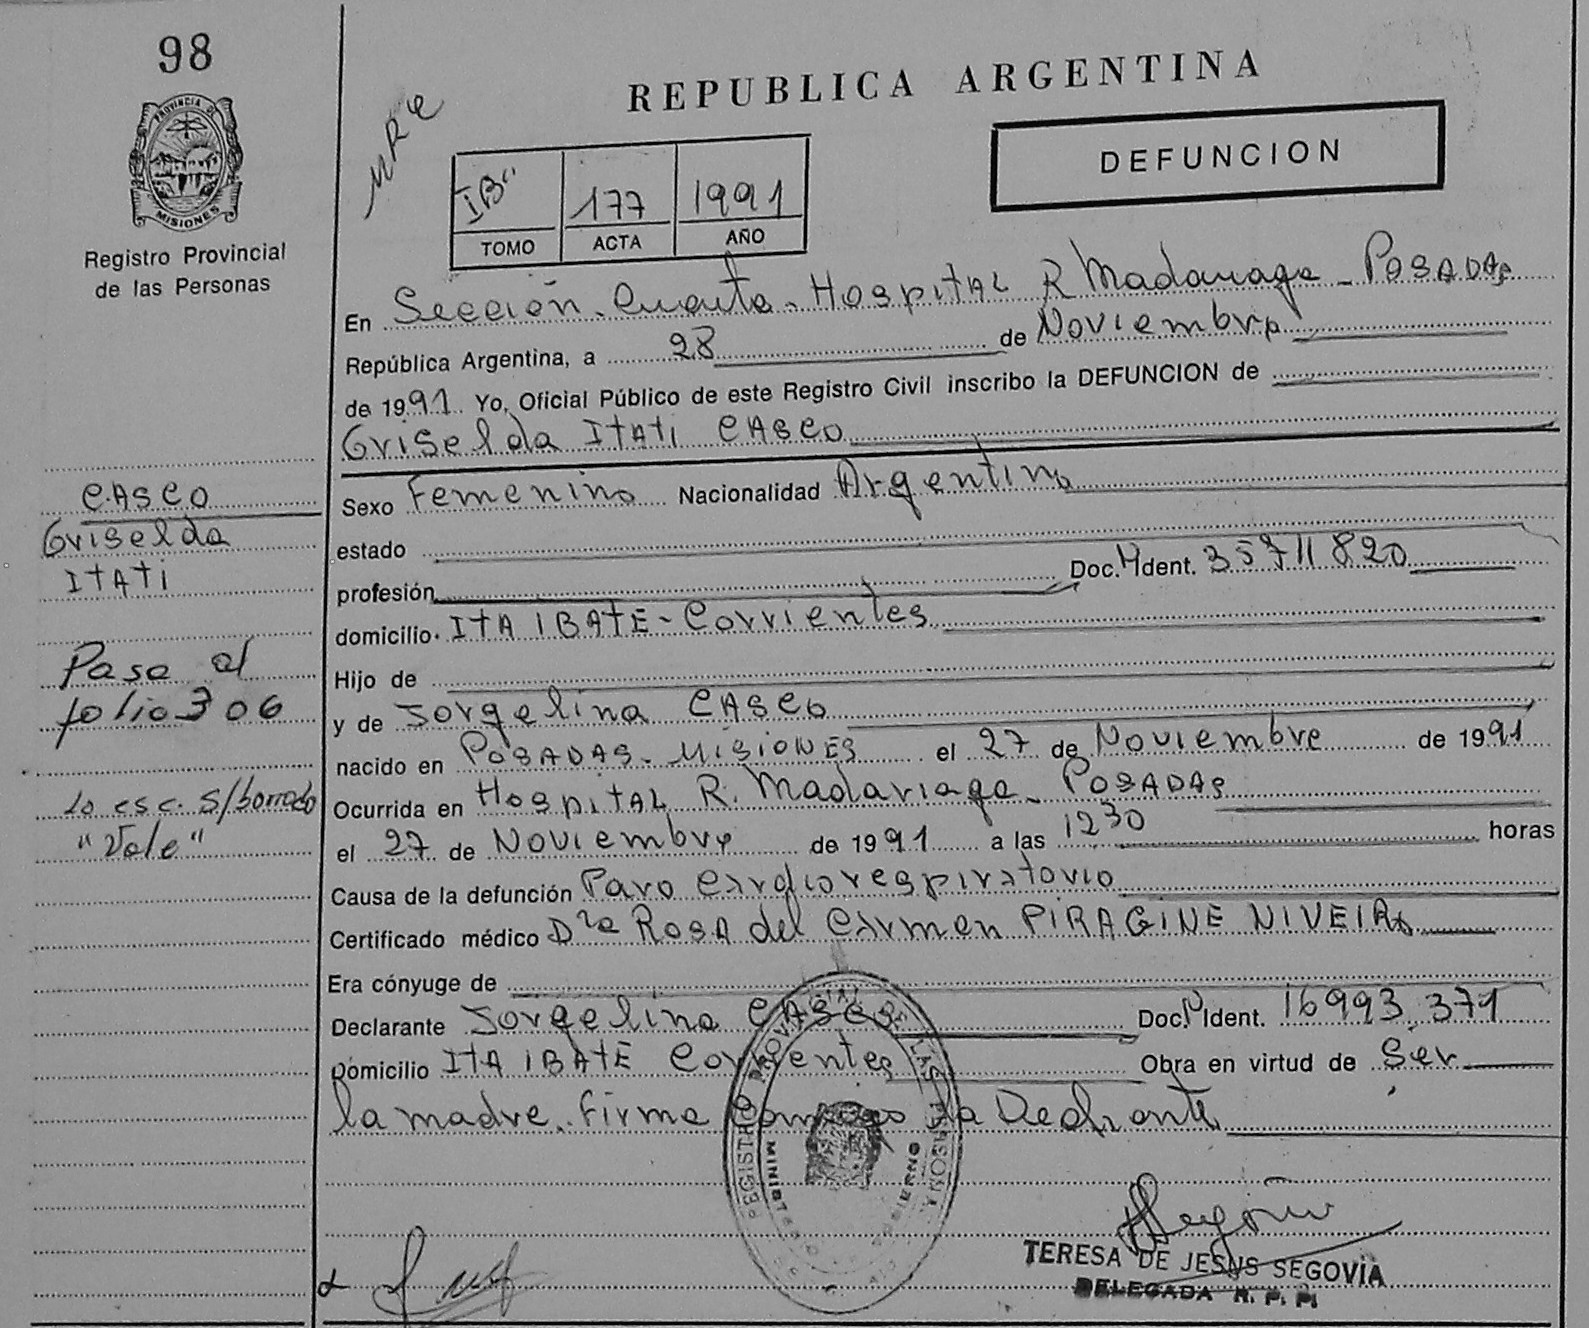 98
PROVINCIA DE
MISIONES
Registro Provincial
de las Personas
REPUBLICA ARGENTINA
DEFUNCION
IB" 177 1991
TOMO ACTA AÑO
En Sección Cuarta - Hospital R Madariaga - Posadas
República Argentina, a 28 de Noviembre
de 1991 Yo, Oficial Público de este Registro Civil inscribo la DEFUNCION de
Griselda Itati CASCO
CASCO
Griselda
Itati
Sexo Femenino Nacionalidad Argentina
estado
profesión Doc. N Ident. 35711820
domicilio. ITA IBATE - Corrientes
Pasa al
folio 306
Hijo de
y de Jorgelina CASCO
nacido en POSADAS - MISIONES el 27 de Noviembre de 1991
Lo esc. s/borrado
"Vale"
Ocurrida en Hospital R. Madariaga - POSADAS
el 27 de Noviembre de 1991 a las 1230 horas
Causa de la defunción Paro cardiorespiratorio
Certificado médico Dra Rosa del Carmen PIRAGINE NIVEIRA
Era cónyuge de
Declarante Jorgelina CASCO Doc. N Ident. 16993.371
Domicilio ITA IBATE Corrientes Obra en virtud de Ser
la madre. Firma Conmigo la
REGISTRO PROVINCIAL DE LAS PERSONAS
MINISTERIO DE GOBIERNO
TERESA DE JESUS SEGOVIA
DELEGADA R. P. P.